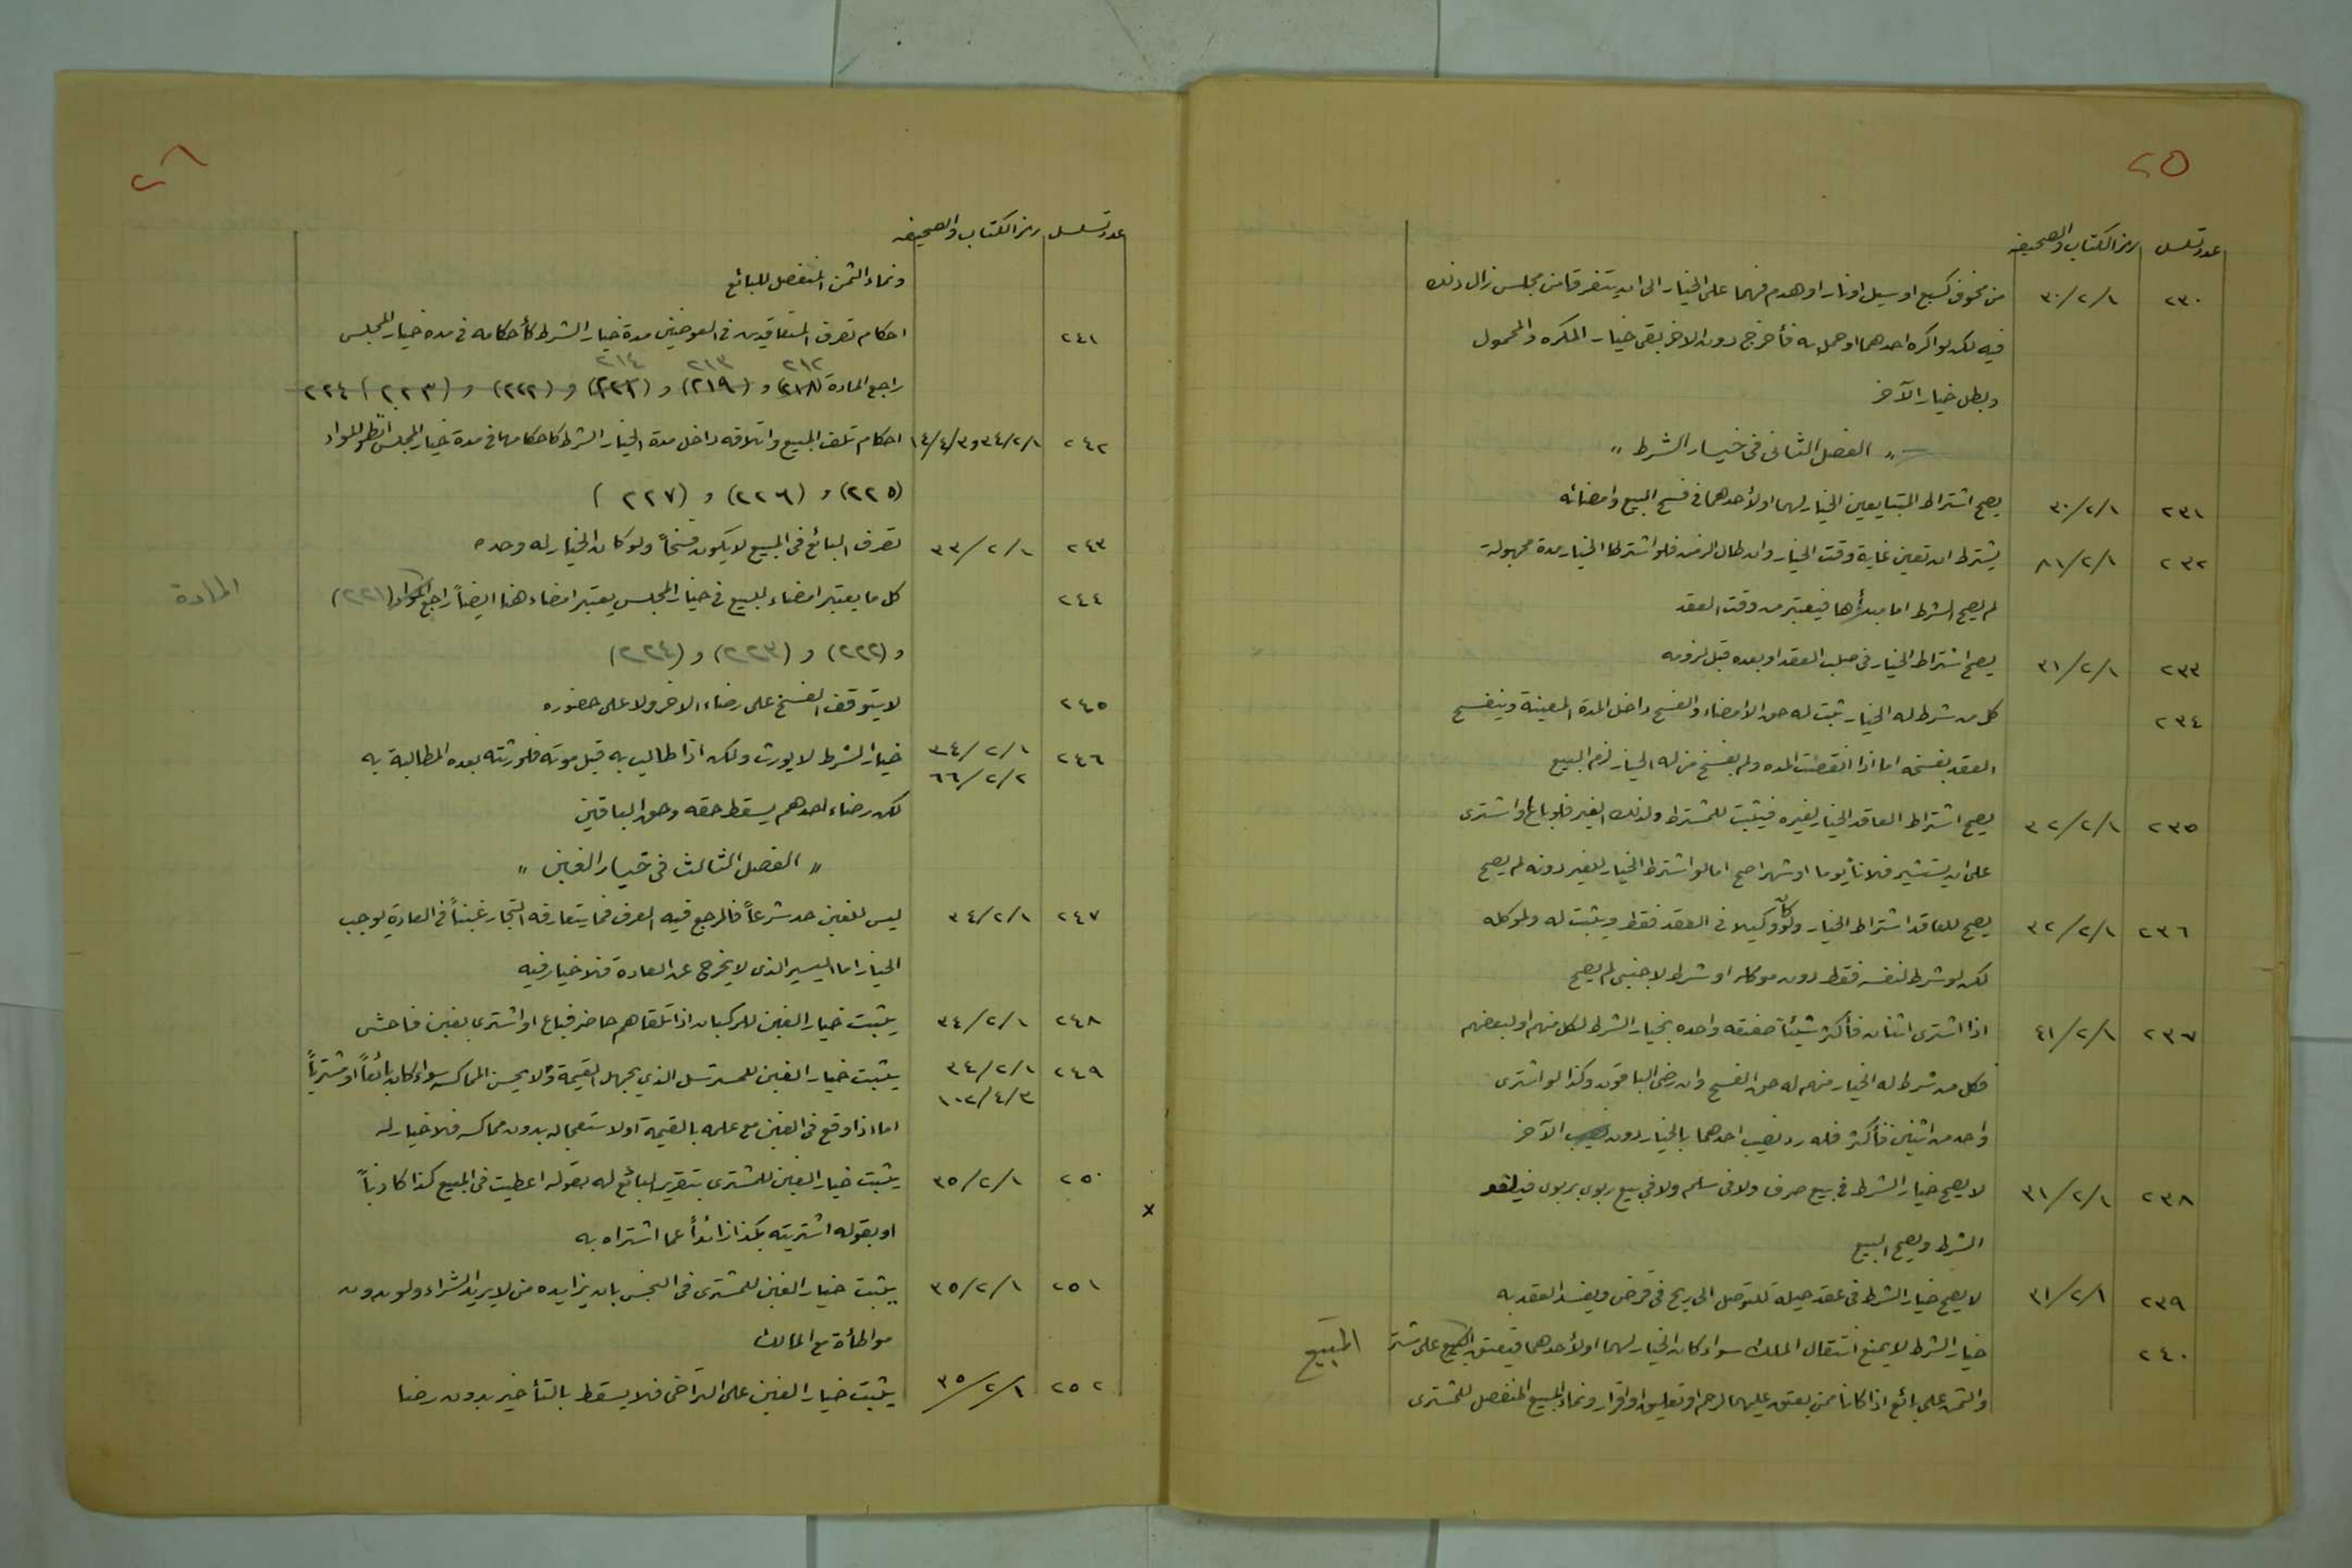 ٢٥
عدد تسلسل رمز الكتاب والصحيفه
٢٣٠ ٣٠/٢/١ من مخوف كسبع او سيل او نار او هدم فهما على الخيار الى ان يتفرقا من مجلس زال ذلك
فيه لكن لو اكره احدهما او حمل به فأخرج دون الاخر بقي خيار المكره والمحمول
وبطل خيار الآخر
" الفصل الثاني في خيار الشرط "
٢٣١ ٣٠/٢/١ يصح اشتراط المتبايعين الخيار لهما او لأحدهما في فسخ المبيع وامضائه
٢٣٢ ٨١/٢/١ يشترط ان تعين غاية وقت الخيار وان طال الزمن فلو اشترطا الخيار مدة مجهولة
لم يصح الشرط اما مبدأها فيعتبر من وقت العقد
٢٣٣ ٣١/٢/١ يصح اشتراط الخيار في صلب العقد او بعده قبل لزومه
٢٣٤ كل من شرط له الخيار ثبت له حق الأمضاء والفسخ داخل المدة المعينة وينفسخ
العقد بفسخه اما اذا انقضت المده ولم يفسخ من له الخيار لزم البيع
٢٣٥ ٣٢/٢/١ يصح اشتراط العاقد الخيار لغيره فيثبت للمشترط ولذلك الغير فلو باع او اشترى
على ان يستشير فلاناً يوما او شهرا صح اما لو اشترط الخيار للغير دونه لم يصح
٢٣٦ ٣٢/٢/١ يصح للعاقد اشتراط الخيار ولو كان وكيلا في العقد فقط ويثبت له ولموكله
لكن لو شرط لنفسه فقط دون موكله او شرط لاجنبي لم يصح
٢٣٧ ٤١/٢/١ اذا اشترى اثنان فأكثر شيئاً صفقه واحده بخيار الشرط لكل منهم او لبعضهم
فكل من شرط له الخيار منهم له حق الفسخ وان رضي الباقون وكذا لو اشترى
واحد من اثنين فأكثر فله رد نصيب احدهما بالخيار دون نصيب الآخر
٢٣٨ ٣١/٢/١ لا يصح خيار الشرط في بيع صرف ولا في سلم ولا في بيع ربوي بربوي فيلغو
الشرط ويصح البيع
٢٣٩ ٣١/٢/١ لا يصح خيار الشرط في عقد حيلة للتوصل الى ربح في قرض ويفسد العقد به
٢٤٠ خيار الشرط لا يمنع انتقال الملك سواء كان الخيار لهما او لأحدهما فيعتق المبيع على مشتر المبيع
والثمن على بائع اذا كانا ممن يعتق عليهما لرحم او تعليق او اقرار ونماء المبيع المنفصل للمشترى
٢٦
عدد تسلسل رمز الكتاب والصحيفه
ونماء الثمن المنفصل للبائع
٢٤١ احكام تصرف المتعاقدين في العوضين مدة خيار الشرط كأحكامه في مدة خيار المجلس
٢١٢ ٢١٣ ٢١٤
راجع المادة (٢١٨) و (٢١٩) و (٢٢١) و (٢٢٢) و (٢٢٣) ٢٢٤
٢٤٢ ٣٤/٢/١ و١٤/٤/٣ احكام تلف المبيع واتلافه داخل مدة الخيار الشرط كاحكامها في مدة خيار المجلس انظر المواد
(٢٢٥) و (٢٢٦) و (٢٢٧)
٢٤٣ ٣٣/٢/١ تصرف البائع في المبيع لا يكون فسخاً ولو كان الخيار له وحده
٢٤٤ كل ما يعتبر امضاء للبيع في خيار المجلس يعتبر امضاء هنا ايضاً راجع المواد (٢٢١) المادة
و (٢٢٢) و (٢٢٣) و (٢٢٤)
٢٤٥ لا يتوقف الفسخ على رضاء الاخر ولا على حضوره
٢٤٦ ٣٤/٢/١ ٦٦/٢/٢ خيار الشرط لا يورث ولكن اذا طالب به قبل موته فلورثته بعده المطالبة به
لكن رضاء احدهم يسقط حقه وحق الباقين
" الفصل الثالث في خيار الغبن "
٢٤٧ ٣٤/٢/١ ليس للغبن حد شرعاً فالمرجع فيه العرف فما يتعارفه التجار غبناً في العادة يوجب
الخيار اما اليسير الذي لا يخرج عن العادة فلا خيار فيه
٢٤٨ ٣٤/٢/١ يثبت خيار الغبن للركبان اذا تلقاهم حاضر فباع او اشترى بغبن فاحش
٢٤٩ ٣٤/٢/١ ١٠٢/٤/٣ يثبت خيار الغبن للمسترسل الذي يجهل القيمة ولا يحسن المماكسه سواء كان بائعاً او مشترياً
اما اذا وقع في الغبن مع علمه بالقيمة او لاستعجاله بدون مماكسه فلا خيار له
٢٥٠ ٣٥/٢/١ يثبت خيار الغبن للمشترى بتغرير البائع له بقوله اعطيت في المبيع كذا كاذباً
x
او بقوله اشتريته بكذا زائداً عما اشتراه به
٢٥١ ٣٥/٢/١ يثبت خيار الغبن للمشترى في النجش بان يزايده من لا يريد الشراء ولو بدون
مواطأة مع المالك
٢٥٢ ٣٥/٢/١ يثبت خيار الغبن على التراخي فلا يسقط بالتأخير بدون رضا